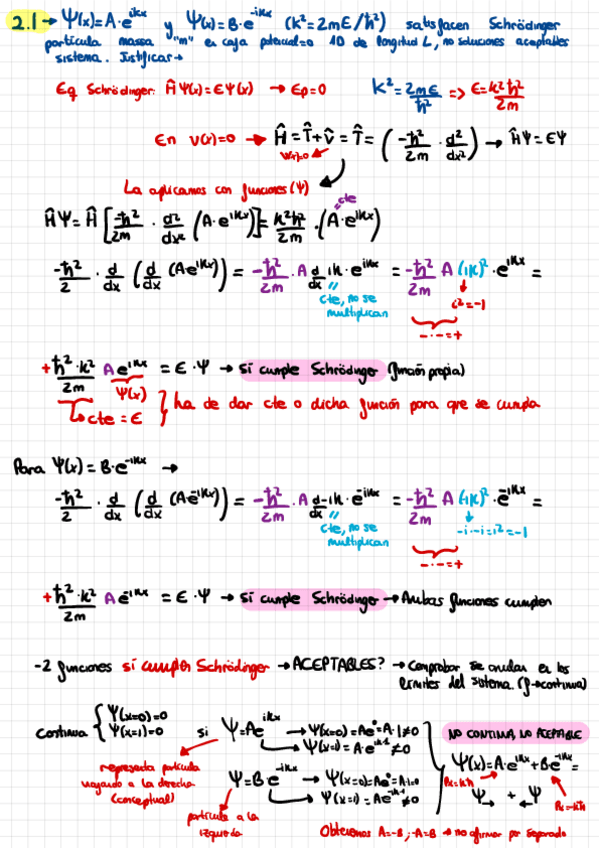 2.1 → Ψ(x)=A·e^{ikx} y Ψ(x)=B·e^{-ikx} (k²=2mE/ħ²) satisfacen Schrödinger
partícula masa "m" en caja potencial=0 1D de longitud L, no soluciones aceptables
sistema. Justificar→
Eq Schrödinger: ĤΨ(x)=EΨ(x) → Ep=0
k²=2mE/ħ² => E=k²ħ²/2m
En V(x)=0 → Ĥ=T̂+V̂=T̂=(-ħ²/2m · d²/dx²) → ĤΨ=EΨ
V(x)=0
La aplicamos con funciones (Ψ)
=cte
ĤΨ=Ĥ[-ħ²/2m · d²/dx² (A·e^{ikx})]=k²ħ²/2m·(A·e^{ikx})
-ħ²/2 · d/dx (d/dx (Ae^{ikx})) = -ħ²/2m · A d/dx ik·e^{ikx} = -ħ²/2m A (ik)²·e^{ikx} =
cte, no se
multiplican
i²=-1
-·-=+
+ħ²·k²/2m A e^{ikx} = E·Ψ → sí cumple Schrödinger (función propia)
Ψ(x)
cte = E
ha de dar cte o dicha función para que se cumpla
Para Ψ(x)=B·e^{-ikx} →
-ħ²/2 · d/dx (d/dx (Ae^{-ikx})) = -ħ²/2m · A d/dx -ik·e^{-ikx} = -ħ²/2m A (-ik)²·e^{-ikx} =
cte, no se
multiplican
-i·-i=i²=-1
-·-=+
+ħ²·k²/2m A e^{-ikx} = E·Ψ → sí cumple Schrödinger → Ambas funciones cumplen
-2 funciones sí cumplen Schrödinger → ACEPTABLES? → Comprobar se anulan en los
límites del sistema. (→continua)
Continua { Ψ(x=0)=0
Ψ(x=1)=0
si Ψ=Ae^{ikx} → Ψ(x=0)=Ae⁰=A·1≠0
→ Ψ(x=1)=A·e^{ik·1}≠0
NO CONTINUA, NO ACEPTABLE
representa partícula
viajando a la derecha
(conceptual)
Ψ=B·e^{-ikx} → Ψ(x=0)=Ae⁰=A·1≠0
→ Ψ(x=1)=Ae^{-ik·1}≠0
partícula a la
izquierda
Ψ(x)=A·e^{ikx}+B·e^{-ikx}=
Px=kħ
Px=-kħ
Ψ + Ψ
Obtenemos A=-B; -A=B → no afirmar por separado